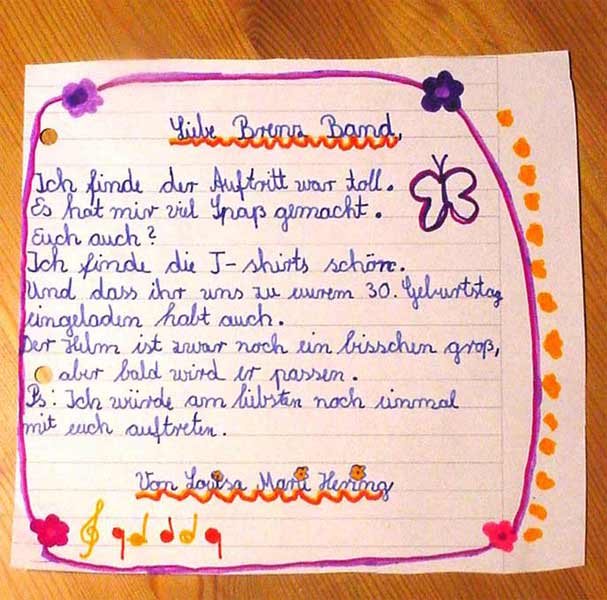 Liebe Brenz Band,
Ich finde der Auftritt war toll.
Es hat mir viel Spaß gemacht.
Euch auch?
Ich finde die T-shirts schön.
Und dass ihr uns zu eurem 30. Geburtstag
eingeladen habt auch.
Der Helm ist zwar noch ein bisschen groß,
aber bald wird er passen.
Ps: Ich würde am liebsten noch einmal
mit euch auftreten.
Von Louisa Marie Hering